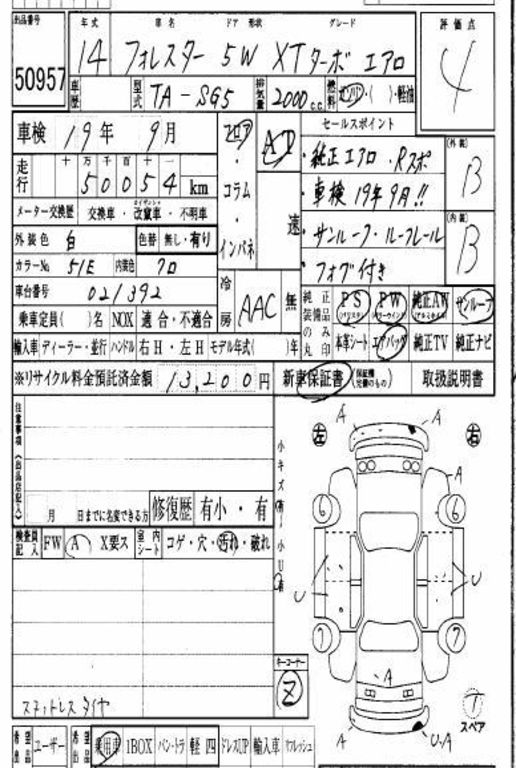 出品番号 年式 車名 ドア 形状 グレード 評価点
50957 14 フォレスター 5W XTターボ エアロ 4
車歴 型式 TA-SG5 排気量 2000 c.c. 燃料 ガソリン・( )・軽油
車検 19年 9月 フロア・コラム・インパネ AT 速
セールスポイント
・純正エアロ・Rスポ
・車検19年9月!!
・サンルーフ・ルーフレール
・フォグ付き
(外装) B
(内装) B
走行 十 万 千 百 十 一
50054 km
メーター交換歴 交換車・改竄車・不明車
外装色 白 色替 無し・有り
カラーNo. 51E 内装色 クロ
車台番号 021392
冷房 AAC 無
乗車定員( )名 NOX 適合・不適合
輸入車 ディーラー・並行 ハンドル 右H・左H モデル年式( )年
純正装備品のみ丸印 PS PW 純正AW サンルーフ
本革シート エアバッグ 純正TV 純正ナビ
※リサイクル料金預託済金額 13,200円 新車保証書 取扱説明書
注意事項(出品店記入)
月 日までに名変できる方 修復歴 有小・有
検査員記入 FW A X要ス 室内シート コゲ・穴・汚れ・破れ
小キズ有 小U有
左 右
A A
A
6 6
U U
7 7
A
A U・A
キーコーナー
Z
T
スペア
スタットレスタイヤ
希望出品 ユーザー 希望出品 乗用車 1BOX バン・トラ 軽四 ドレスUP 輸入車 リフレッシュ